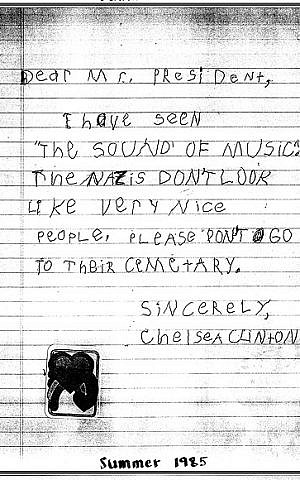 Dear Mr. President,
I have seen
"The SOUND OF MUSIC."
The NAZIS DON'T LOOK
LIKE VERY NICE
PEOPLE. PLEASE DON'T GO
TO THEIR CEMETARY.
SINCERELY,
Chelsea CLINTON
Summer 1985